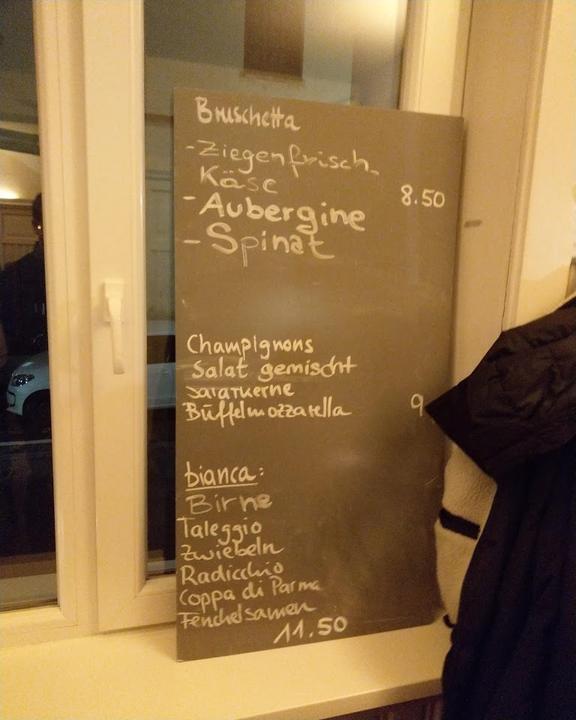 Bruschetta
- Ziegenfrisch-
Käse
8.50
- Aubergine
- Spinat
Champignons
Salat gemischt
Büffelmozzarella 9
bianca:
Birne
Taleggio
Zwiebeln
Radicchio
Coppa di Parma
Fenchelsamen
11.50